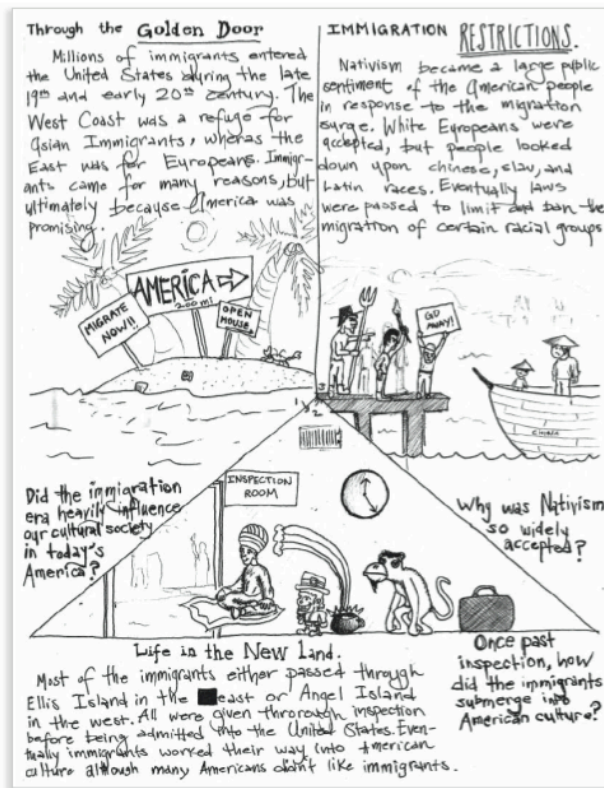 Through the Golden Door
Millions of immigrants entered
the United States during the late
19th and early 20th century. The
West Coast was a refuge for
Asian Immigrants, wheras the
East was for Europeans. Immigr-
ants came for many reasons, but
ultimately because America was
promising.
AMERICA
200 mi.
MIGRATE
NOW!!
OPEN
HOUSE
IMMIGRATION RESTRICTIONS.
Nativism became a large public
sentiment of the American people
in response to the migration
surge. White Europeans were
accepted, but people looked
down upon chinese, slav, and
Latin races. Eventually laws
were passed to limit and ban the
migration of certain racial groups
GO
AWAY!
3
1
2
Did the immigration
era heavily influence
our cultural society
in today's
America?
INSPECTION
ROOM
Why was Nativism
so widely
accepted?
Life in the New land.
Most of the immigrants either passed through
Ellis Island in the east or Angel Island
in the west. All were given throrough inspection
before being admitted into the United States. Even-
tually immigrants worked their way into American
culture although many Americans didn't like immigrants.
Once past
inspection, how
did the immigrants
submerge into
American culture?